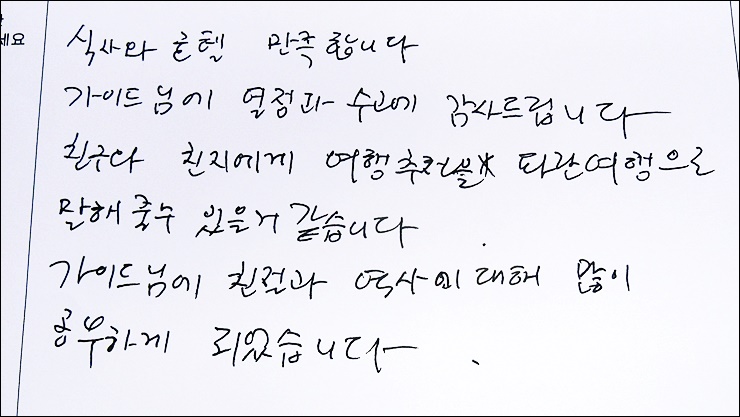 세요
식사와 호텔 만족합니다
가이드님에 열정과 수고에 감사드립니다
친구나 친지에게 여행추천을 파란여행으로
말해줄수 있을거 같습니다
가이드님에 친절과 역사에대해 많이
공부하게 되었습니다